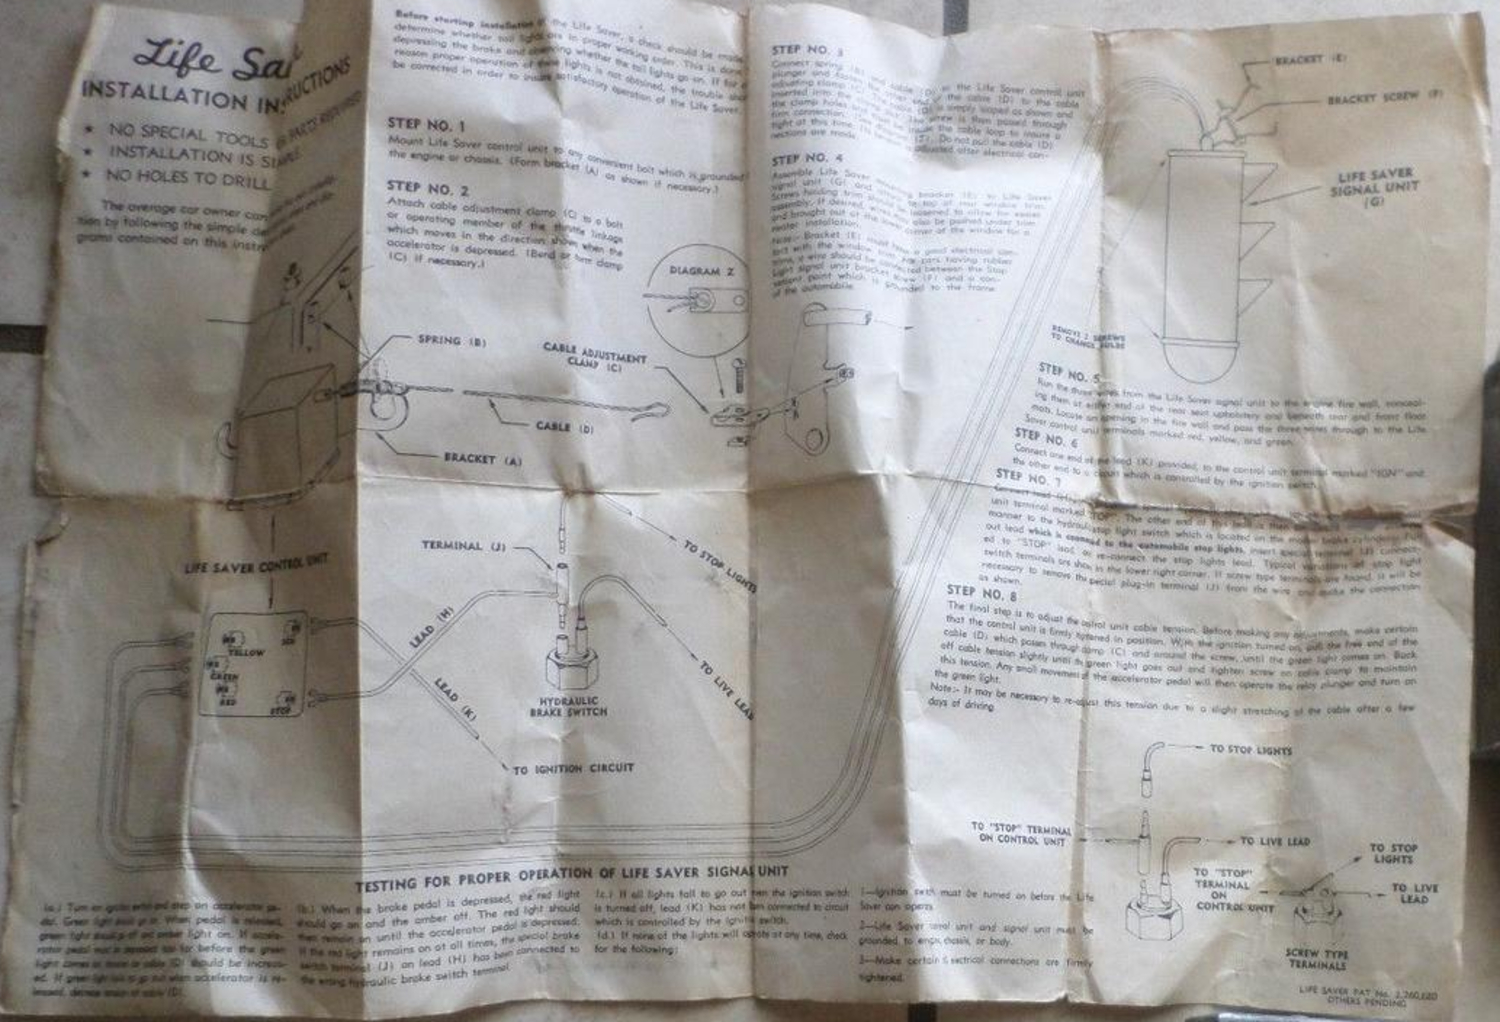 Life Sa
INSTALLATION INSTRUCTIONS
★ NO SPECIAL TOOLS OR PARTS REQUIRED
★ INSTALLATION IS SIMPLE
★ NO HOLES TO DRILL
The average car owner can
tion by following the simple
grams contained on this
Before starting installation of the Life Saver, a check should be made
determine whether tail lights are in proper working order. This is done
depressing the brake and observing whether the tail lights go on. If for
reason proper operation of these lights is not obtained, the trouble
be corrected in order to insure satisfactory operation of the Life Saver.
STEP NO. 1
Mount Life Saver control unit to any convenient bolt which is grounded
the engine or chassis. (Form bracket (A) as shown if necessary.)
STEP NO. 2
Attach cable adjustment clamp (C) to a bolt
or operating member of the throttle linkage
which moves in the direction shown when the
accelerator is depressed. (Bend or form clamp
(C) if necessary.)
DIAGRAM 2
SPRING (B)
CABLE ADJUSTMENT
CLAMP (C)
CABLE (D)
BRACKET (A)
STEP NO. 3
Connect spring (B) and cable (D) to the Life Saver control unit
plunger and fasten the other end of the cable (D) to the cable
adjusting clamp (C). The cable is simply looped as shown and
inserted into the clamp. The screw is then passed through
the clamp holes and must be inside the cable loop to insure a
firm connection. (See diagram 2). Do not pull the cable (D)
tight at this time. adjusted after electrical con-
nections are made.
STEP NO. 4
Assemble Life Saver mounting bracket (E) to Life Saver
signal unit (G) and top of rear window trim.
Screws holding trim loosened to allow for easier
assembly. If desired, wires also be pushed under trim
and brought out at the lower corner of the window for a
neater installation.
Note:- Bracket (E) must have a good electrical con-
tact with the window trim. For cars having rubber
trim, a wire should be connected between the Stop
Light signal unit bracket screw (F) and a con-
venient point which is grounded to the frame
of the automobile.
BRACKET (E)
BRACKET SCREW (F)
LIFE SAVER
SIGNAL UNIT
(G)
REMOVE 2 SCREWS
TO CHANGE BULBS
STEP NO. 5
Run the three wires from the Life Saver signal unit to the engine fire wall, conceal-
ing them at either end of the rear seat upholstery and beneath rear and front floor
mats. Locate an opening in the fire wall and pass the three wires through to the Life
Saver control unit terminals marked red, yellow, and green.
STEP NO. 6
Connect one end of the lead (K) provided, to the control unit terminal marked "IGN" and
the other end to a circuit which is controlled by the ignition switch.
STEP NO. 7
Connect lead
unit terminal marked "STOP". The other end of this lead is then
manner to the hydraulic stop light switch which is located on the brake cylinder. Pull
out lead which is connected to the automobile stop lights. Insert special terminal (J) connect-
ed to "STOP" lead and re-connect the stop lights lead. Typical variations of stop light
switch terminals are shown in the lower right corner. If screw type terminals are found, it will be
necessary to remove the special plug-in terminal (J) from the wire and make the connection
as shown.
STEP NO. 8
The final step is to adjust the control unit cable tension. Before making any adjustments, make certain
that the control unit is firmly tightened in position. With the ignition turned on, pull the free end of the
cable (D) which passes through clamp (C) and around the screw, until the green light comes on. Back
off cable tension slightly until the green light goes out and tighten screw on cable clamp to maintain
this tension. Any small movement of the accelerator pedal will then operate the relay plunger and turn on
the green light.
Note:- It may be necessary to re-adjust this tension due to a slight stretching of the cable after a few
days of driving
LIFE SAVER CONTROL UNIT
YELLOW
GREEN
RED
STOP
TERMINAL (J)
LEAD (H)
LEAD (K)
TO STOP LIGHTS
TO LIVE LEAD
HYDRAULIC
BRAKE SWITCH
TO IGNITION CIRCUIT
TO STOP LIGHTS
TO "STOP" TERMINAL
ON CONTROL UNIT
TO LIVE LEAD
TO "STOP"
TERMINAL
ON
CONTROL UNIT
TO STOP
LIGHTS
TO LIVE
LEAD
SCREW TYPE
TERMINALS
TESTING FOR PROPER OPERATION OF LIFE SAVER SIGNAL UNIT
1a.) Turn on ignition switch and step on accelerator pe-
dal. Green light should go on. When pedal is released,
green light should go off and amber light on. If accele-
rator pedal must be depressed too far before the green
light comes on tension on cable (D) should be increas-
ed. If green light fails to go out when accelerator is re-
leased, decrease tension of cable (D).
1b.) When the brake pedal is depressed, the red light
should go on and the amber off. The red light should
then remain on until the accelerator pedal is depressed.
If the red light remains on at all times, the special brake
switch terminal (J) on lead (H) has been connected to
the wrong hydraulic brake switch terminal.
1c.) If all lights fail to go out when the ignition switch
is turned off, lead (K) has not been connected to circuit
which is controlled by the ignition switch.
1d.) If none of the lights will operate at any time, check
for the following:
1—Ignition switch must be turned on before the Life
Saver can operate.
2—Life Saver control unit and signal unit must be
grounded to engine, chassis, or body.
3—Make certain all electrical connections are firmly
tightened.
LIFE SAVER PAT No. 2,260,680
OTHERS PENDING